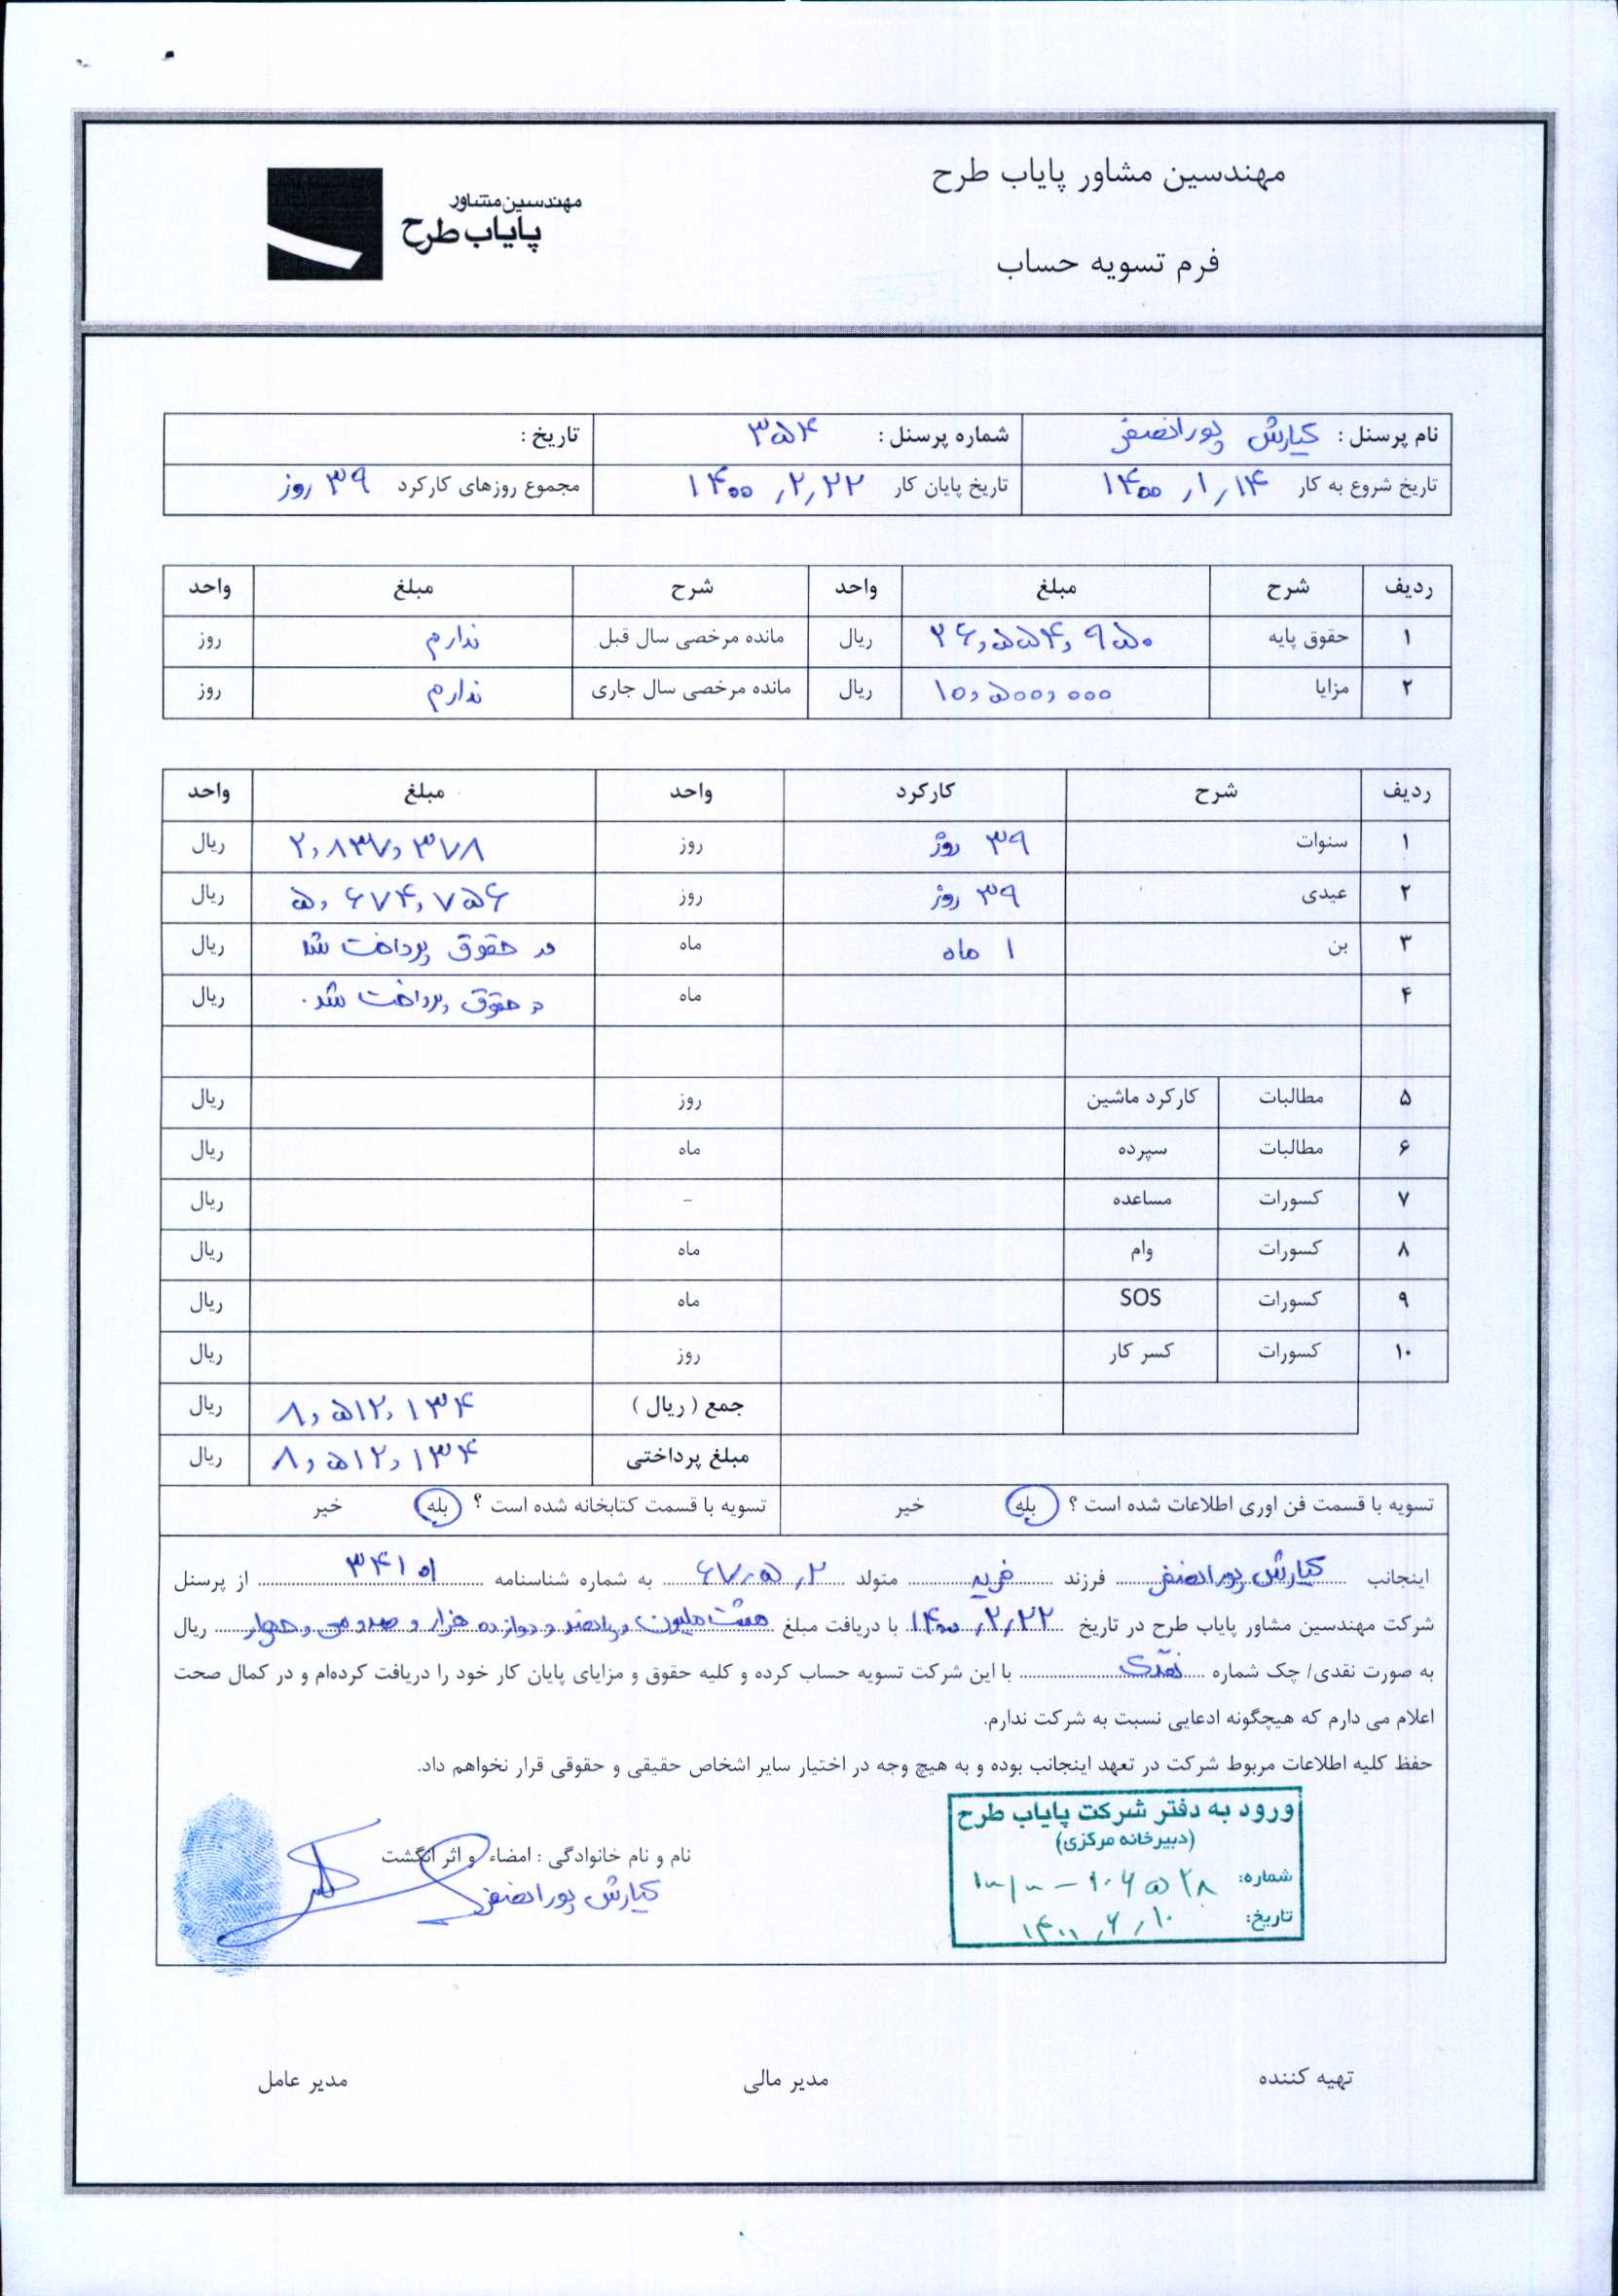 مهندسین مشاور پایاب طرح
مهندسین مشاور
پایاب طرح
فرم تسویه حساب
نام پرسنل : کیارش پورانصفی شماره پرسنل : ۳۵۴ تاریخ :
تاریخ شروع به کار ۱۴۰۰,۱,۱۴ تاریخ پایان کار ۱۴۰۰,۲,۲۲ مجموع روزهای کارکرد ۳۹ روز
ردیف شرح مبلغ واحد شرح مبلغ واحد
۱ حقوق پایه ۲۶,۵۵۴,۹۵۰ ریال مانده مرخصی سال قبل ندارم روز
۲ مزایا ۱۰,۵۰۰,۰۰۰ ریال مانده مرخصی سال جاری ندارم روز
ردیف شرح کارکرد واحد مبلغ واحد
۱ سنوات ۳۹ روز روز ۲,۸۳۷,۳۷۸ ریال
۲ عیدی ۳۹ روز روز ۵,۶۷۴,۷۵۶ ریال
۳ بن ۱ ماه ماه در حقوق پرداخت شد ریال
۴ ماه در حقوق پرداخت شد. ریال
۵ مطالبات کارکرد ماشین روز ریال
۶ مطالبات سپرده ماه ریال
۷ کسورات مساعده - ریال
۸ کسورات وام ماه ریال
۹ کسورات SOS ماه ریال
۱۰ کسورات کسر کار روز ریال
جمع ( ریال ) ۸,۵۱۲,۱۳۴ ریال
مبلغ پرداختی ۸,۵۱۲,۱۳۴ ریال
تسویه با قسمت فن اوری اطلاعات شده است ؟ بله خیر تسویه با قسمت کتابخانه شده است ؟ بله خیر
اینجانب کیارش پورانصفی فرزند فرید متولد ۶۷,۵,۲ به شماره شناسنامه از پرسنل
شرکت مهندسین مشاور پایاب طرح در تاریخ ۱۴۰۰,۲,۲۲ با دریافت مبلغ هشت میلیون و پانصد و دوازده هزار و صد و سی و چهار ریال
به صورت نقدی/ چک شماره نقدی با این شرکت تسویه حساب کرده و کلیه حقوق و مزایای پایان کار خود را دریافت کرده‌ام و در کمال صحت
اعلام می دارم که هیچگونه ادعایی نسبت به شرکت ندارم.
حفظ کلیه اطلاعات مربوط شرکت در تعهد اینجانب بوده و به هیچ وجه در اختیار سایر اشخاص حقیقی و حقوقی قرار نخواهم داد.
ورود به دفتر شرکت پایاب طرح
(دبیرخانه مرکزی)
شماره:
تاریخ: ۱۴۰۰,۶,۱۰
نام و نام خانوادگی : امضاء و اثر انگشت
کیارش پورانصفی
تهیه کننده مدیر مالی مدیر عامل